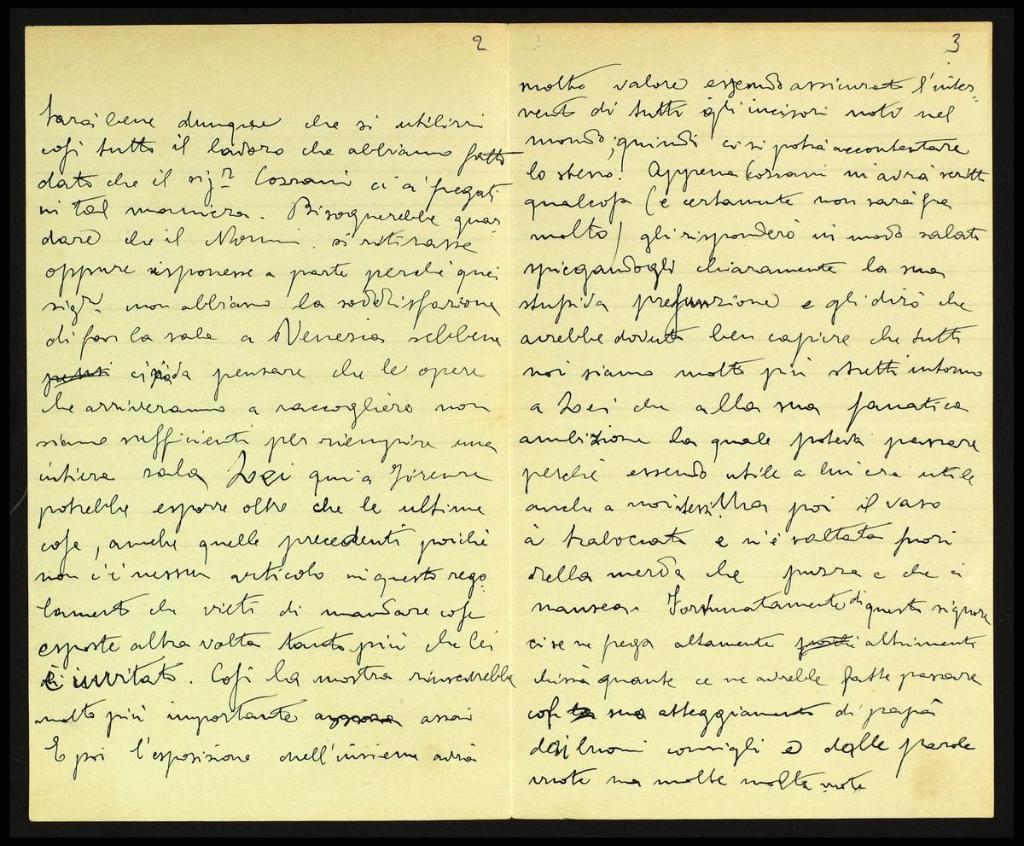 2
Sarà bene dunque che si utilizzi
così tutto il lavoro che abbiamo fatto
dato che il sigr Cozzani ci à fregati
in tal maniera. Bisognerebbe guar-
dare che il Nomi si ritirasse
oppure esponesse a parte perché quei
sigri non abbiano la soddisfazione
di far la sala a Venezia sebbene
ci sia da pensare che le opere
che arriveranno a raccogliere non
siano sufficienti per riempire una
intiera sala. Lei qui a Firenze
potrebbe esporre oltre che le ultime
cose, anche quelle precedenti poiché
non c'è nessun articolo in questo rego-
lamento che vieti di mandare cose
esposte altra volta tanto più che lei
è invitato. Così la mostra riuscirebbe
molto più importante assai
E poi l'esposizione nell'insieme avrà
3
molto valore essendo assicurato l'inter-
vento di tutti gli incisori noti nel
mondo, quindi ci si potrà accontentare
lo stesso. Appena Cozzani mi avrà scritto
qualcosa (e certamente non sarà fra
molto) gli risponderò in modo salato
spiegandogli chiaramente la sua
stupida presunzione e gli dirò che
avrebbe dovuto ben capire che tutti
noi siamo molto più stretti intorno
a Lei che alla sua fanatica
ambizione la quale poteva passare
perché essendo utile a lui era utile
anche a noi stessi. Ma poi il vaso
à traboccato e n'è saltata fuori
della merda che puzza e che ci
nausea. Fortunatamente di questo signore
ce se ne frega altamente altrimenti
chissà quante ce ne avrebbe fatte passare
col suo atteggiamento di papà
dai buoni consigli e dalle parole
vuote ma molte molto vuote